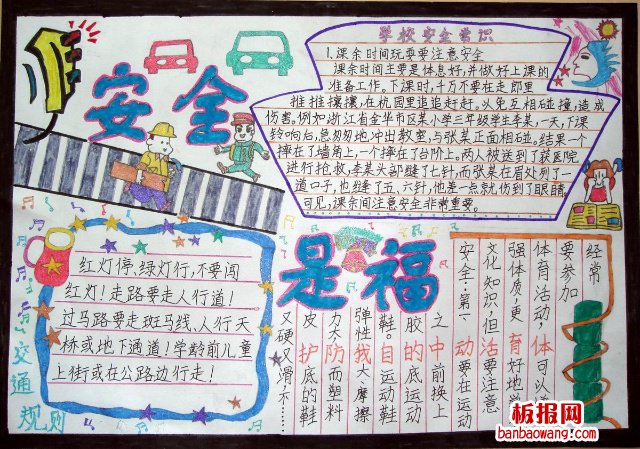 安全
是福
学校安全常识
1.课余时间玩耍要注意安全
课余时间主要是休息好,并做好上课的
准备工作。下课时,千万不要在走郎里
推推攘攘,在校园里追追赶赶。以免互相碰撞,造成
伤害。例如浙江省金华市区某小学三年级学生李某,一天,下课
铃响后,急匆匆地冲出教室,与张某正面相碰。结果一个
摔在了墙角上,一个摔在了台阶上。两人被送到了医院
进行抢救,李某头部缝了七针,而张某在眉处列了一
道口子,也缝了五、六针,也差一点就伤到了眼睛
可见,课余间注意安全非常重要。
红灯停,绿灯行,不要闯
红灯!走路要走人行道!
过马路要走斑马线、人行天
桥或地下通道!学龄前儿童
上街或在公路边行走!
交通规则
经常
要参加
体育活动,体可以
强体质,更育好地学
文化知识,但活要注意
安全:第一动要在运动
之中前换上
胶的底运动
鞋。自运动鞋
弹性我大、摩擦
力大防而塑料
皮护底的鞋
又硬又滑不……
板报网
banbaowang.com